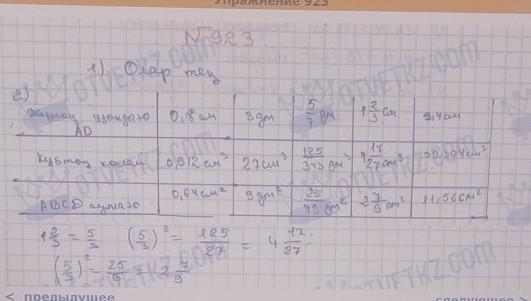 Упражнение 923
№923
1) Олар тең
2)
AD 0,8 см 3 дм 5/7 дм 1 2/3 см 3,4 см
0,512 см³ 27 см³ 125/343 дм³ 4 17/27 см³ 39,304 см³
ABCD 0,64 см² 9 дм² 25/49 см² 2 7/9 см² 11,56 см²
1 2/3 = 5/3 (5/3)³ = 125/27 = 4 17/27
(5/3)² = 25/9 = 2 7/9
OTVETKZ.COM
< предыдущее следующее >